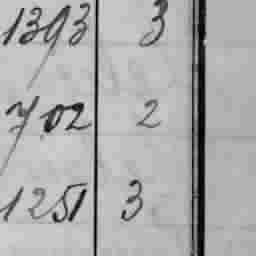 1393 3
702 2
1251 3